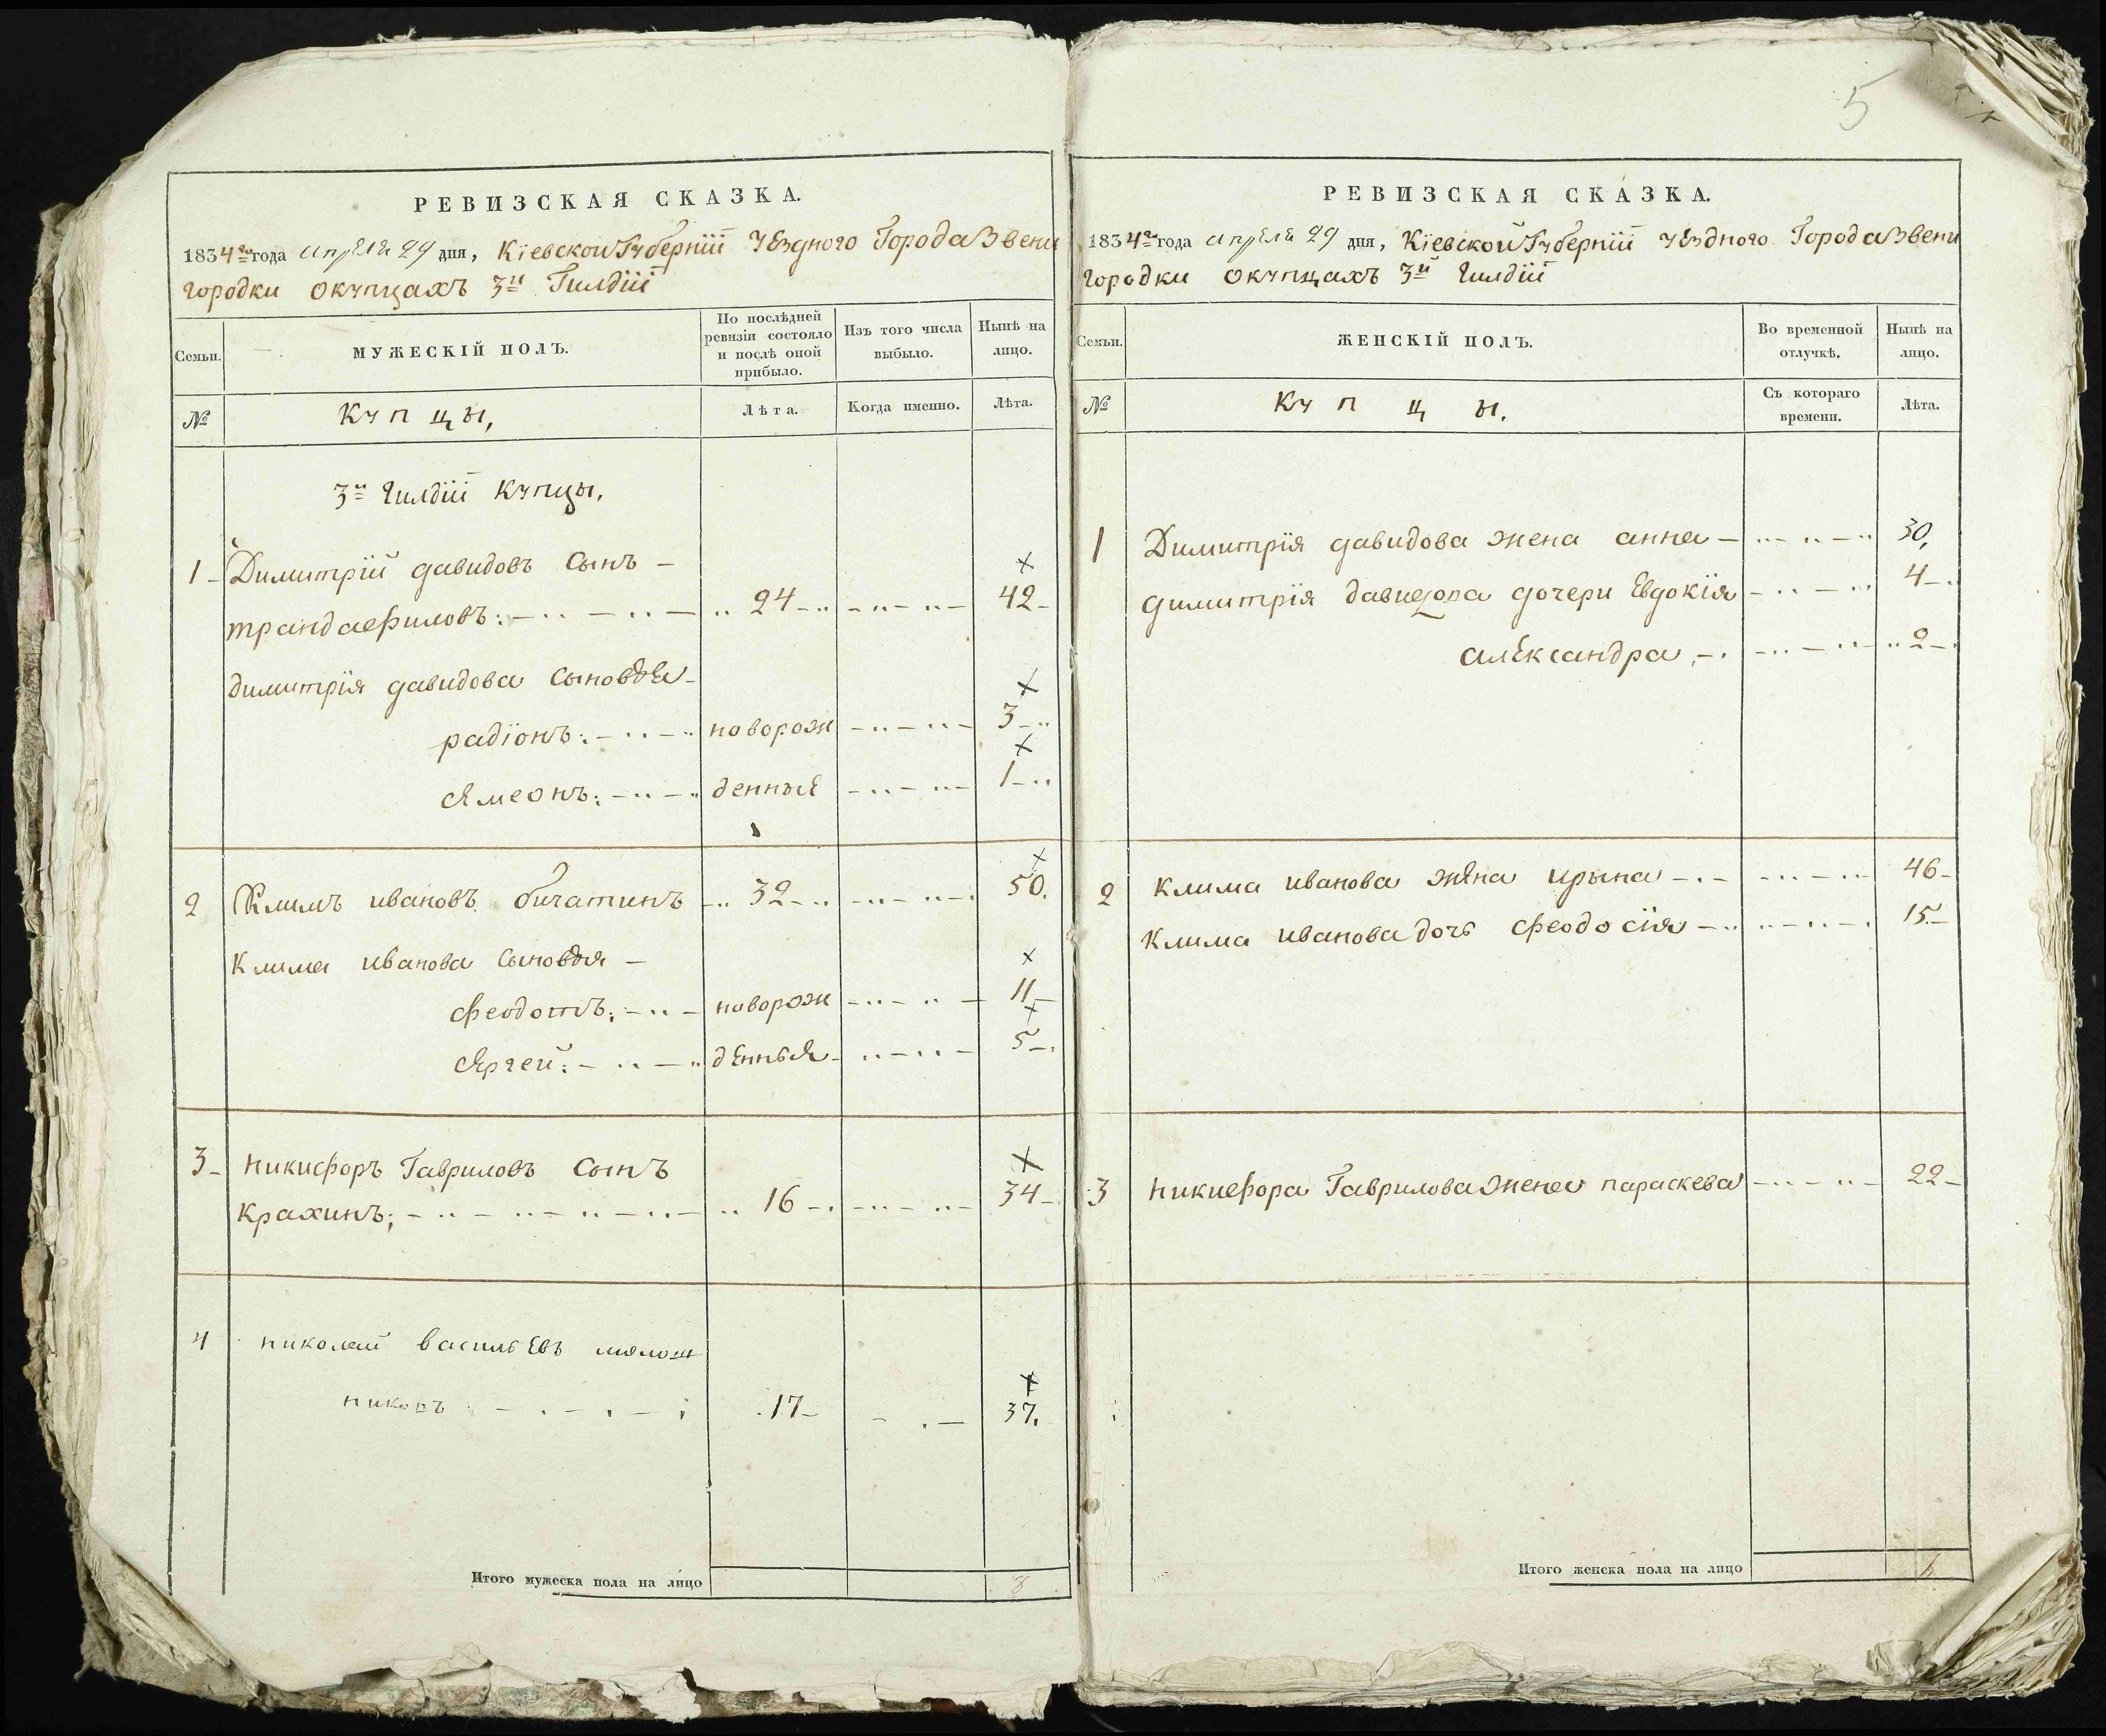 РЕВИЗСКАЯ СКАЗКА.
1834го года апреля 29 дня, Кіевской Губерніи уездного Города Звени
городки окупцахъ 3й Гилдіи
Семьи.
МУЖЕСКІЙ ПОЛЪ.
По послѣдней ревизіи состояло и послѣ оной прибыло.
Изъ того числа выбыло.
Нынѣ на лицо.
№
Купцы,
Лѣта.
Когда именно.
Лѣта.
3й гилдіи купцы,
1 Димитрій давидовъ Сынъ
трандаефиловъ: 24 42
димитрія давидова сыновья
радіонъ: новорож 3
семеонъ: денные 1
2 Климъ ивановъ бичатинъ 32 50.
Клима иванова сыновья
феодотъ: новорож 11
сергей: денные 5
3 никифоръ Гавриловъ Сынъ
крахинъ; 16 34
4 николай васильевъ молош
никовъ 17 37.
Итого мужеска пола на лицо 8
5
РЕВИЗСКАЯ СКАЗКА.
1834го года апреля 29 дня, Кіевской Губерніи уездного Города Звени
городки окупцахъ 3й гилдіи
Семьи.
ЖЕНСКІЙ ПОЛЪ.
Во временной отлучкѣ.
Нынѣ на лицо.
№
Купцы.
Съ котораго времени.
Лѣта.
1 Димитрія давидова жена анна 30,
димитрія давидова дочери Евдокія 4
александра 2
2 Клима иванова жена ирына 46
Клима иванова дочь феодосія 15
3 никифора Гаврилова жена параскева 22
Итого женска пола на лицо